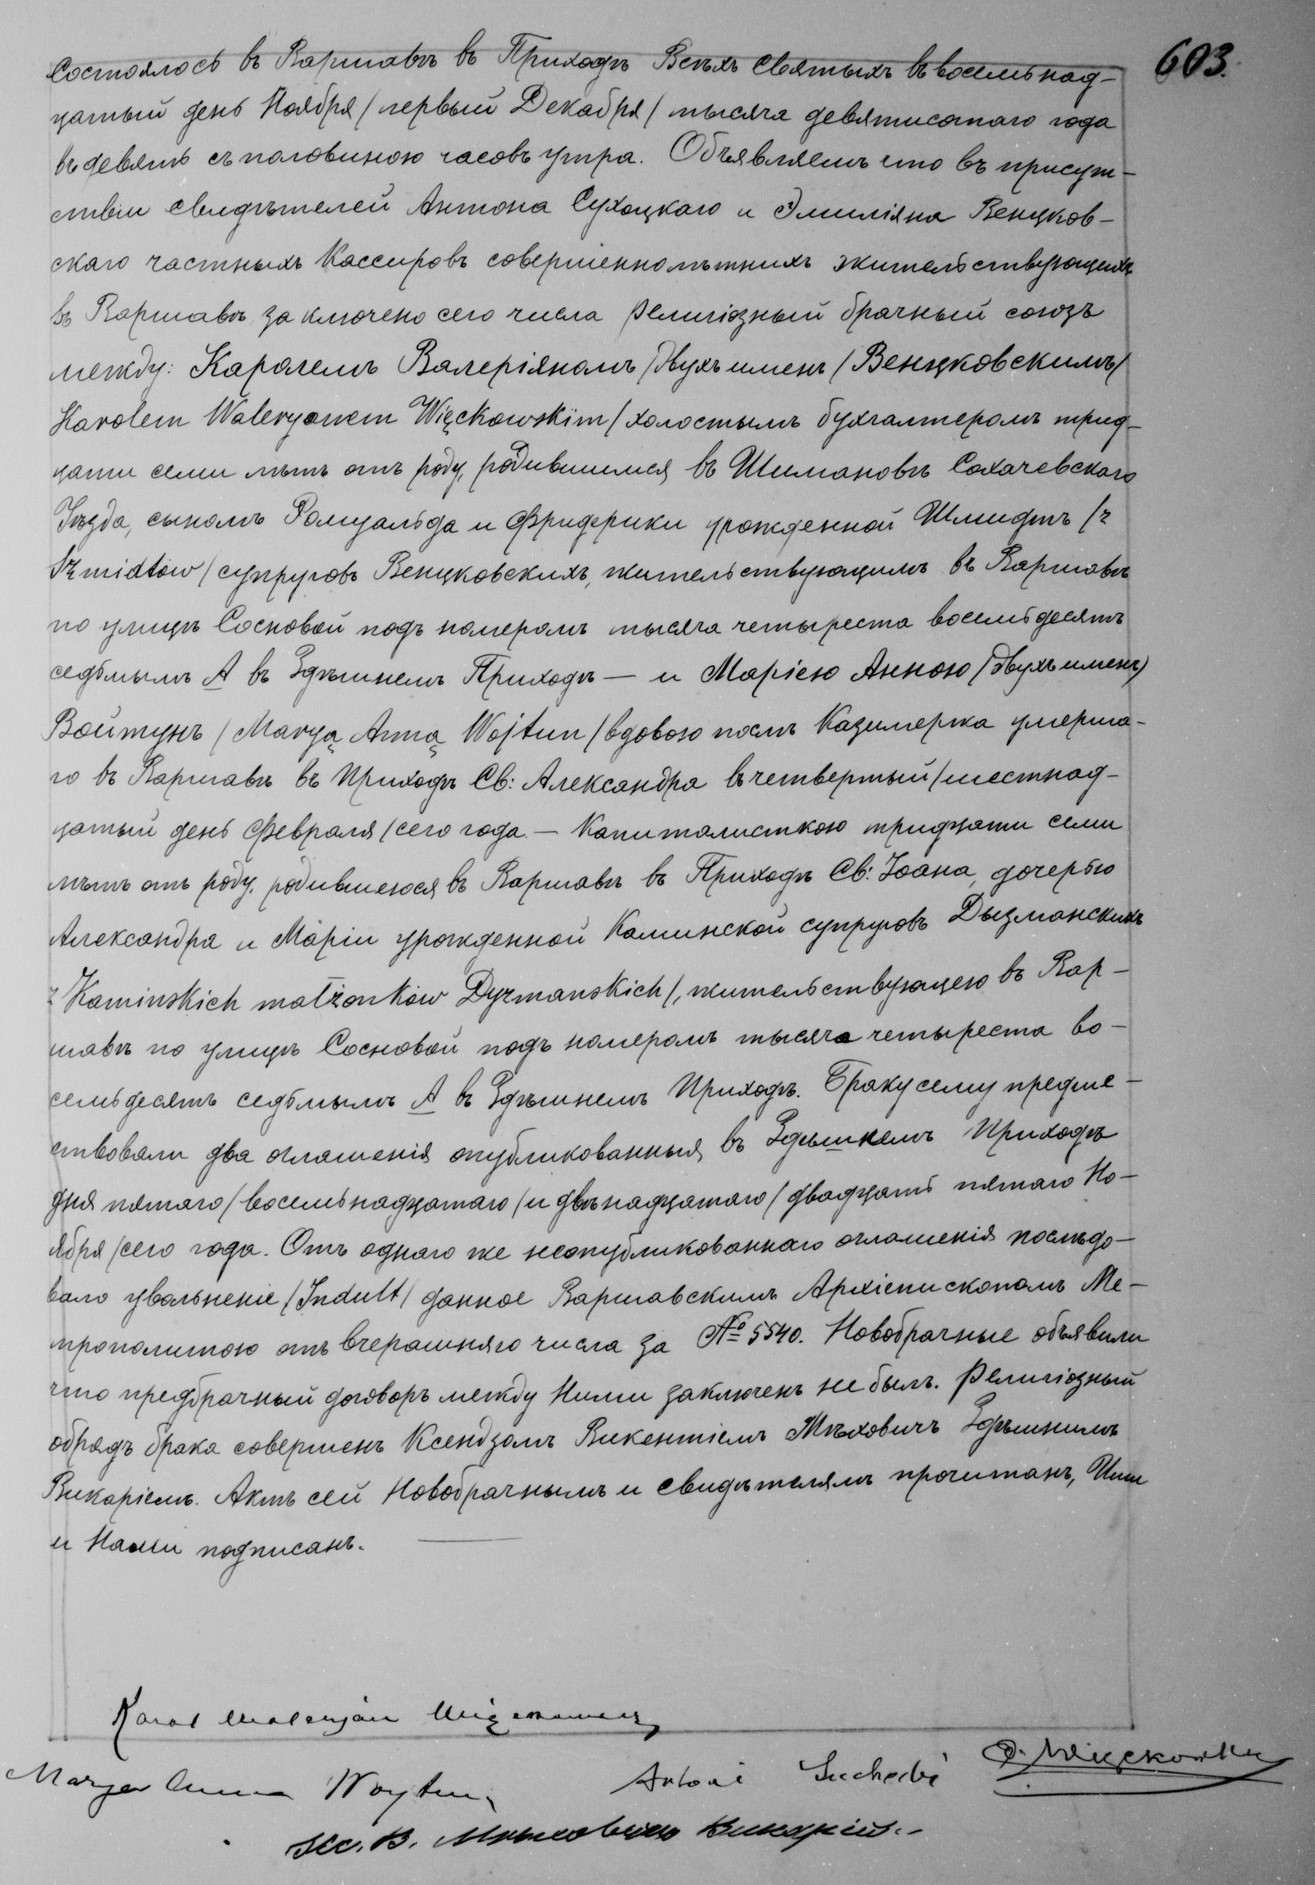 603.
Состоялось въ Варшавѣ въ Приходѣ Всѣхъ Святыхъ въ восемьнад-
цатый день Ноября /первый Декабря/ тысяча девятисотаго года
въ девять съ половиною часовъ утра. Объявляемъ что въ присут-
ствіи свидѣтелей Антона Сухоцкаго и Эмиліяна Венцков-
скаго частныхъ Кассировъ совершеннолѣтнихъ жительствующихъ
въ Варшавѣ заключено сего числа религіозный брачный союзъ
между: Каролемъ Валеріяномъ /двухъ именъ/ Венцковскимъ/
Karolem Waleryanem Więckowskim/ холостымъ бухгалтеромъ трид-
цати семи лѣтъ отъ роду, родившимся въ Шимановѣ Сохачевскаго
Уѣзда, сыномъ Ромуальда и Фридерики урожденной Шмидтъ /z
Szmidtów/ супруговъ Венцковскихъ, жительствующимъ въ Варшавѣ
по улицѣ Сосновой подъ номеромъ тысяча четыреста восемьдесятъ
седьмымъ А въ Здѣшнемъ Приходѣ — и Маріею Анною /двухъ именъ/
Войтунъ /Maryą Anną Wojtun/ вдовою послѣ Казимержа умерша-
го въ Варшавѣ въ Приходѣ Св: Александра въ четвертый /шестнад-
цатый день Февраля/ сего года — Капиталисткою тридцати семи
лѣтъ отъ роду, родившеюся въ Варшавѣ въ Приходѣ Св: Іоана, дочерью
Александра и Маріи урожденной Каминской супруговъ Дызманскихъ
z Kaminskich małżonków Dyzmanskich/, жительствующею въ Вар-
шавѣ по улицѣ Сосновой подъ номеромъ тысяча четыреста во-
семьдесятъ седьмымъ А въ Здѣшнемъ Приходѣ. Браку сему предше-
ствовали два оглашенія опубликованныя въ Здѣшнемъ Приходѣ
дня пятаго /восемьнадцатаго/ и двѣнадцатаго /двадцать пятаго Но-
ября/ сего года. Отъ однаго же неопубликованнаго оглашенія послѣдо-
вало увольненіе /Indult/ данное Варшавскимъ Архіепископомъ Ме-
трополитою отъ вчерашняго числа за № 5540. Новобрачные объявили
что предбрачный договоръ между Ними заключенъ не былъ. Религіозный
обрядъ брака совершенъ Ксендзомъ Викентіемъ Мѣховичъ Здѣшнимъ
Викаріемъ. Актъ сей Новобрачнымъ и свидѣтелямъ прочитанъ, Ими
и Нами подписанъ.
Karol Waleryan Więckowski
Marya Anna Woytun
Antoni Suchocki
E. Więckowski
Кс. В. Мѣховичъ Викарій.